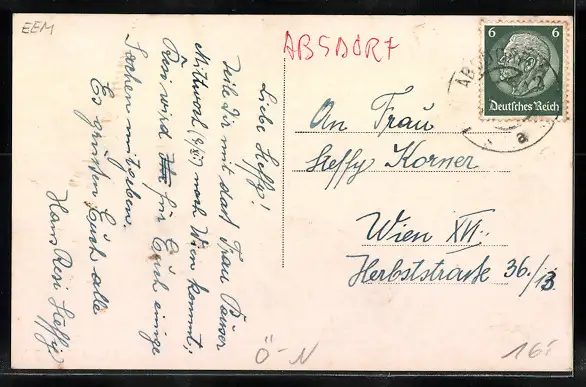 EEM
ABSDORF
6 6
Deutsches Reich
ABSD
a
Liebe Steffy!
Teile dir mit dass Frau
Mittwoch (9/8) nach Wien kommt;
Resi wird für Euch einige
Sachen mitgeben.
Es grüßen Euch alle
Hans Resi Steffy
An Frau
Steffy Korner
Wien XVI.
Herbststraße 36./13
Ö-N
16: